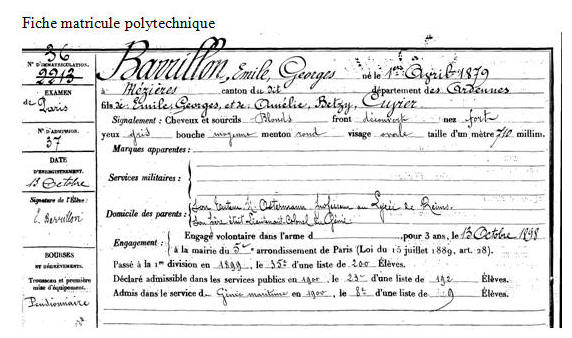 Fiche matricule polytechnique
36
N° D'IMMATRICULATION.
2213
EXAMEN
de Paris
N° D'ADMISSION.
37
DATE
D'ENREGISTREMENT.
13 Octobre
Signature de l'Élève :
E. Barrillon
BOURSES
ET DÉGRÈVEMENTS.
Trousseau et première
mise d'équipement.
Pensionnaire
Barrillon, Emile, Georges né le 1er Avril 1879
à Mézières canton du dit département des Ardennes
fils de Emile, Georges, et de Amélie, Betzy, Cuvier
Signalement : Cheveux et sourcils Blonds front découvert nez fort
yeux gris bouche moyenne menton rond visage ovale taille d'un mètre 710 millim.
Marques apparentes :
Services militaires :
Domicile des parents : Son tuteur M. Ostermann professeur au Lycée de Reims.
Son père était Lieutenant-Colonel du Génie.
Engagement : Engagé volontaire dans l'arme d pour 3 ans, le 13 Octobre 1898
à la mairie du 5e arrondissement de Paris (Loi du 15 juillet 1889, art. 28).
Passé à la 1re division en 1899, le 35e d'une liste de 200 Élèves.
Déclaré admissible dans les services publics en 1900, le 23e d'une liste de 192 Élèves.
Admis dans le service du Génie maritime en 1900, le 8e d'une liste de 9 Élèves.